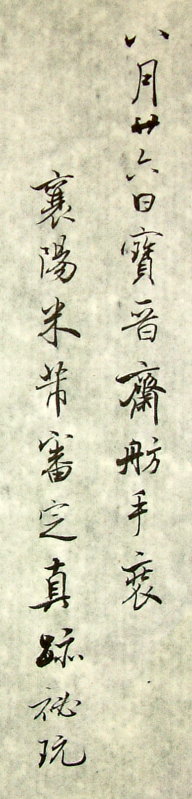 八月廿六日寶晉齋舫手裝
襄陽米芾審定真跡祕玩